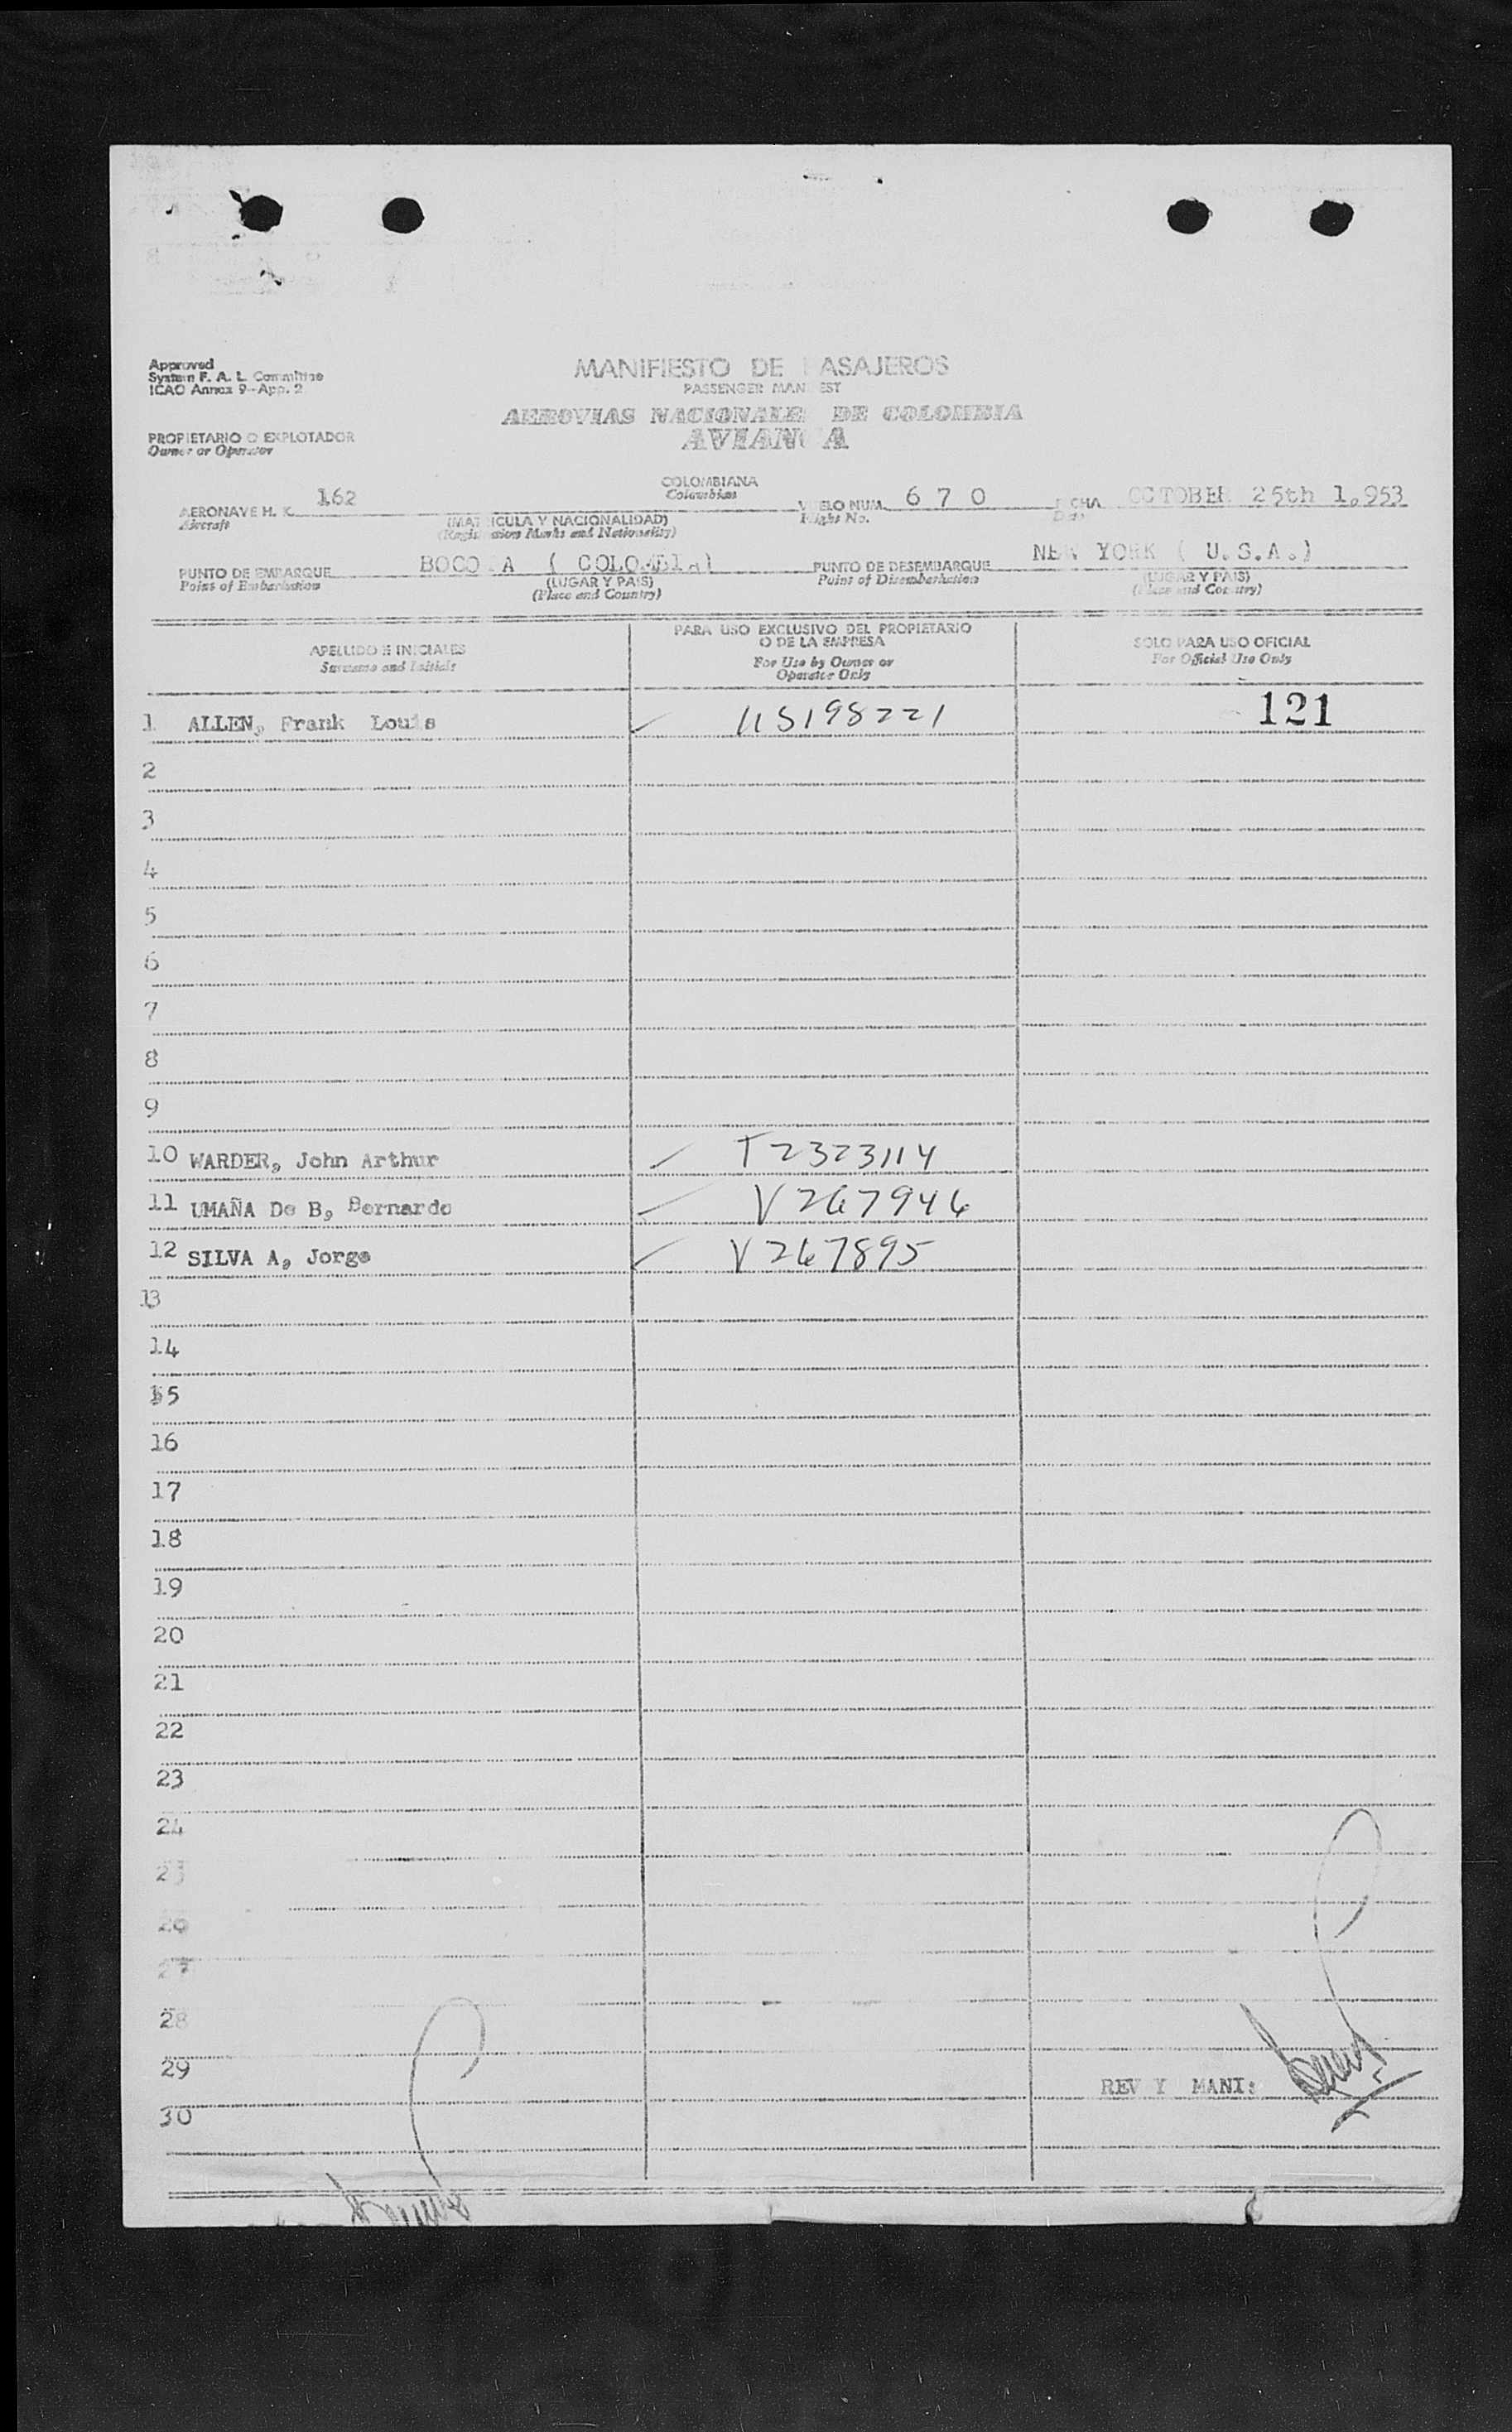 Approved
System F. A. L. Committee
ICAO Annex 9-App. 2
MANIFIESTO DE PASAJEROS
PASSENGER MANIFEST
AEROVIAS NACIONALES DE COLOMBIA
AVIANCA
PROPIETARIO O EXPLOTADOR
Owner or Operator
AERONAVE H. K. 162 COLOMBIANA VUELO NUM. 6 7 0 FECHA OCTOBER 25th 1,953
Aircraft Colombian Flight No. Date
(MATRICULA Y NACIONALIDAD)
(Registration Marks and Nationality)
PUNTO DE EMBARQUE BOGOTA ( COLOMBIA) PUNTO DE DESEMBARQUE NEW YORK ( U.S.A.)
Point of Embarkation (LUGAR Y PAIS) Point of Disembarkation (LUGAR Y PAIS)
(Place and Country) (Place and Country)
APELLIDO E INICIALES PARA USO EXCLUSIVO DEL PROPIETARIO O DE LA EMPRESA SOLO PARA USO OFICIAL
Surname and Initials For Use by Owner or Operator Only For Official Use Only
1 ALLEN, Frank Louis 115198221 121
2
3
4
5
6
7
8
9
10 WARDER, John Arthur T2323114
11 UMAÑA De B, Bernardo V267946
12 SILVA A, Jorge V267895
13
14
15
16
17
18
19
20
21
22
23
24
25
26
27
28
29
REV Y MANI:
30